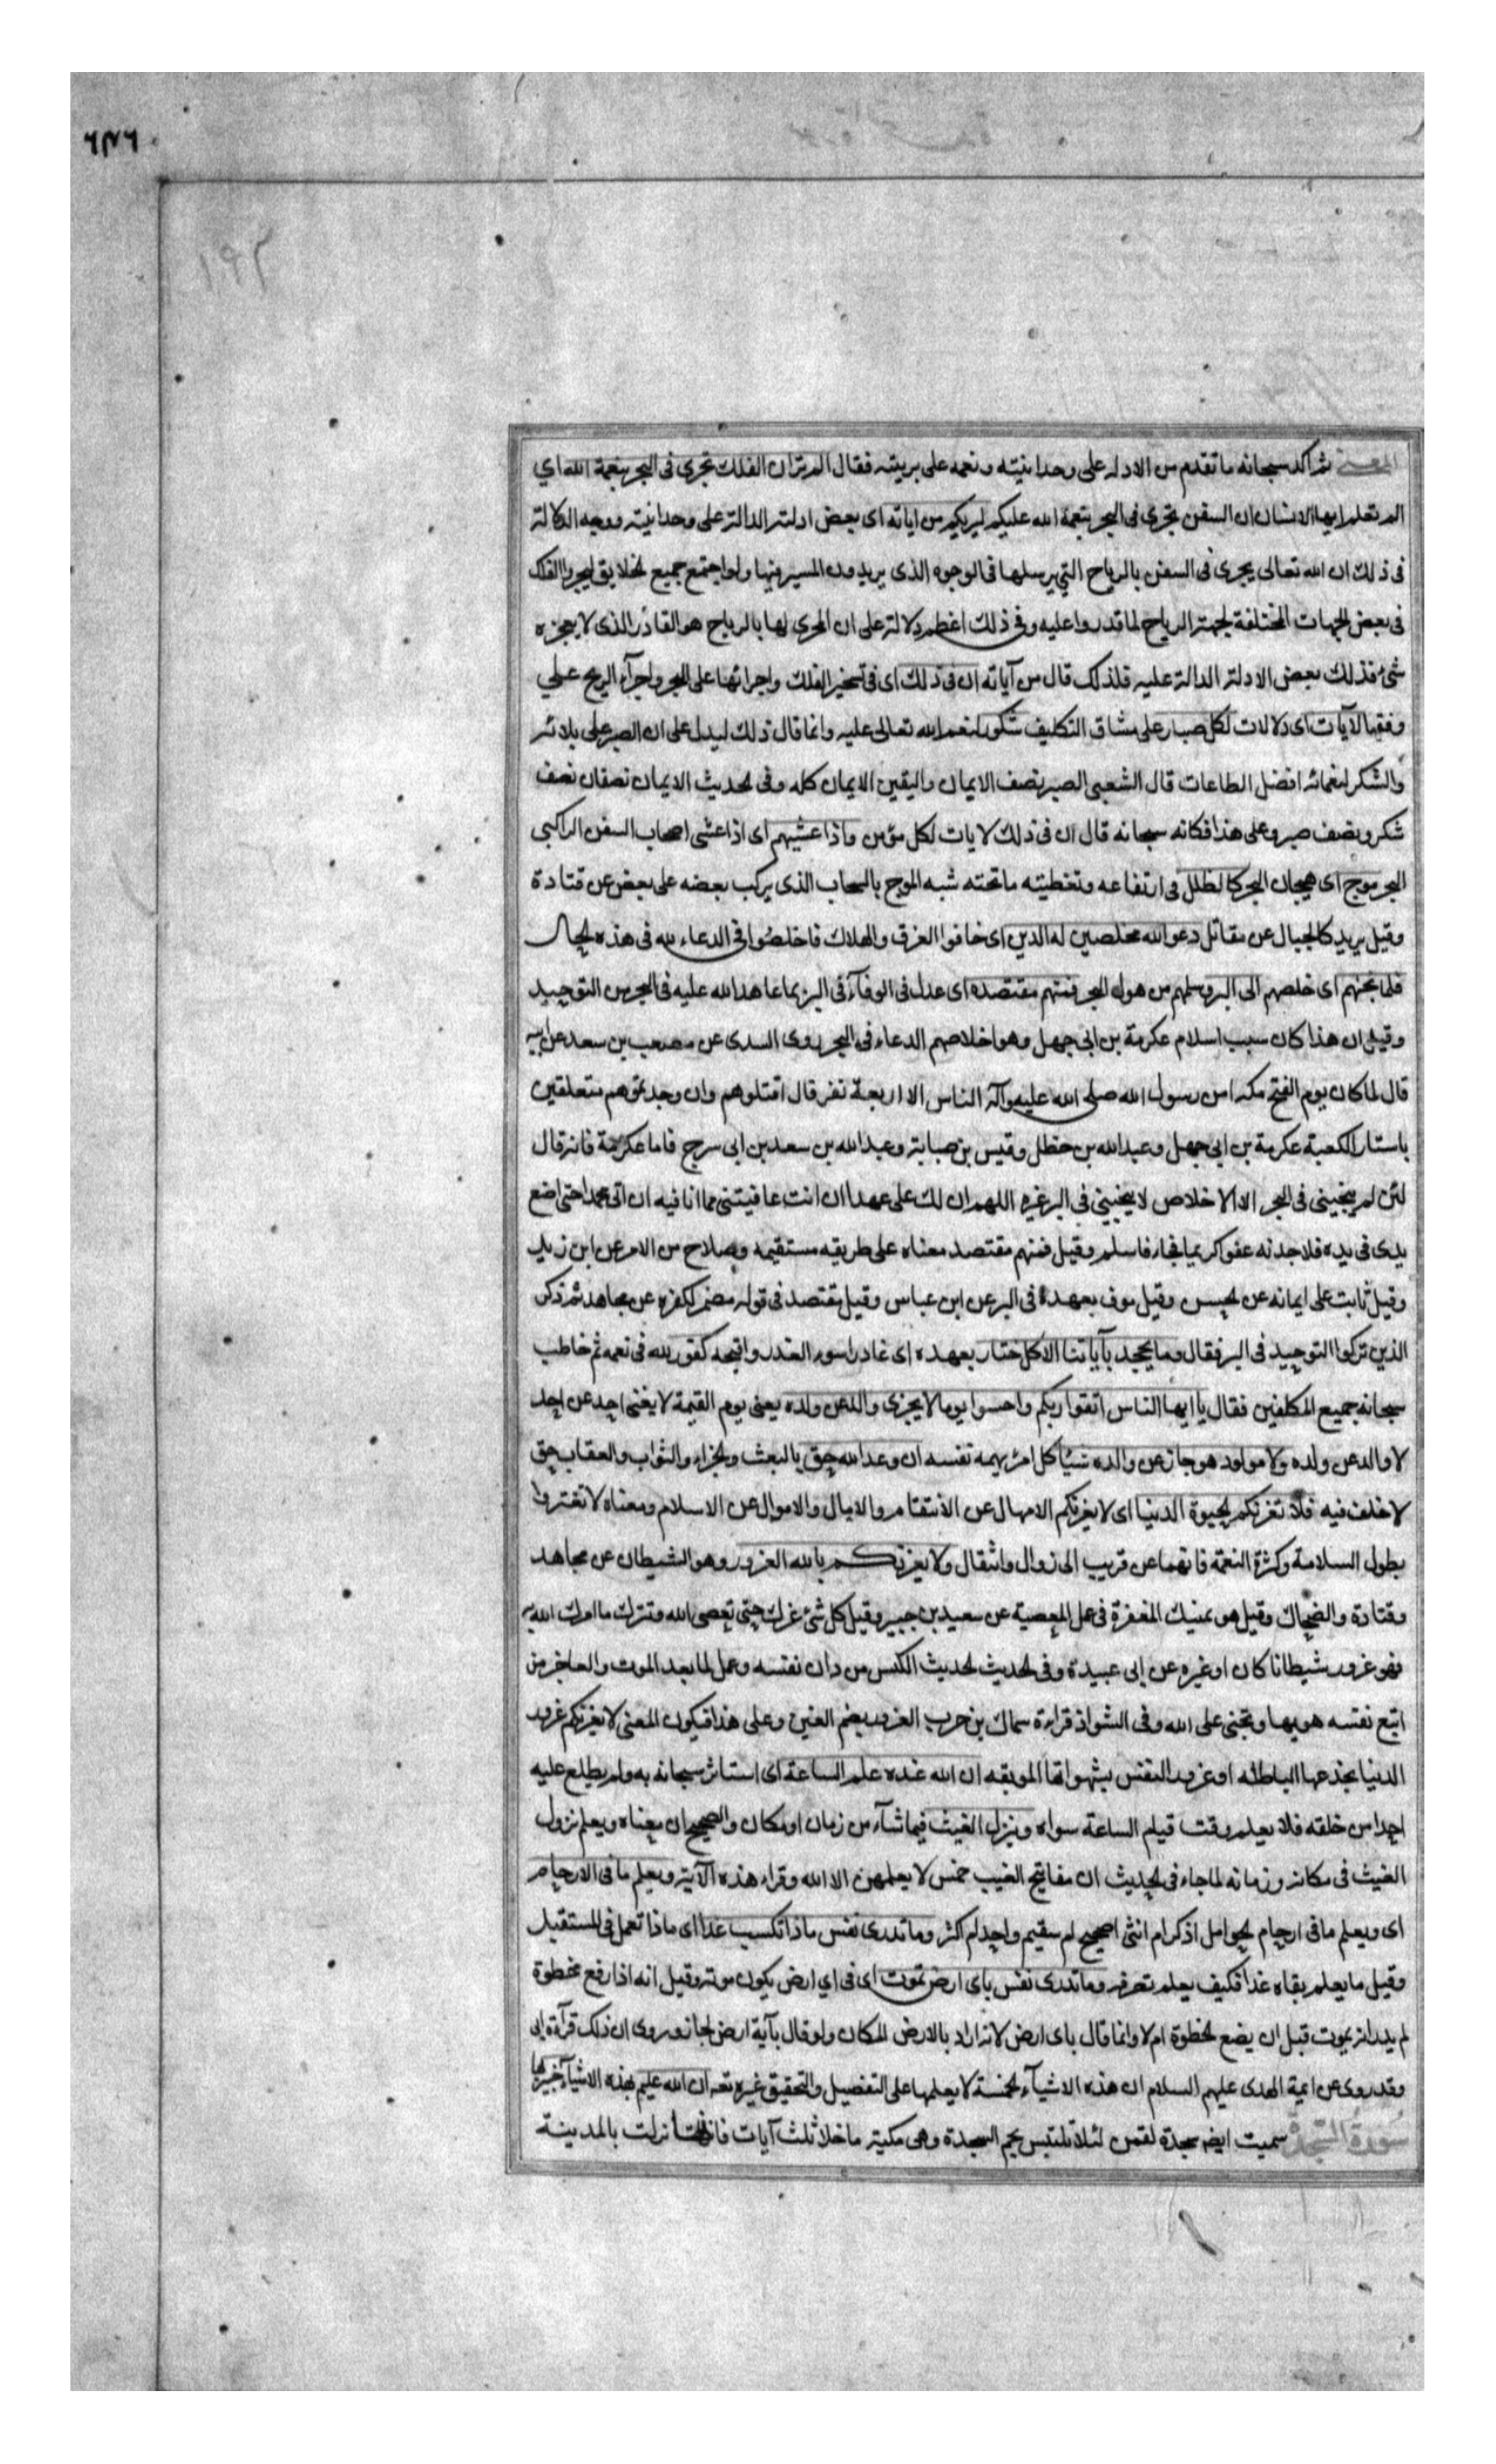 المعنى ثم اكد سبحانه ما تقدم من الادلة على وحدانيته و نعمه على بريته فقال الم تر ان الفلك تجرى فى البحر بنعمة الله اي
الم تعلم ايها الانسان ان السفن تجرى فى البحر بنعمة الله عليكم ليريكم من اياته اى بعض ادلته الدالة على وحدانيته ووجه الدلالة
فى ذلك ان الله تعالى يجرى فى السفن بالرياح التي يرسلها فى الوجوه الذى يريدون المسير فيها ولو اجتمع جميع الخلايق ليجروا الفلك
فى بعض الجهات المختلفة لجهة الرياح لما قدروا عليه وفى ذلك اعظم دلالة على ان المجرى لها بالرياح هو القادر الذى لا يعجزه
شئ فذلك بعض الادلة الدالة عليه فلذلك قال من آياته ان فى ذلك اى فى تسخير الفلك واجرائها على البحر واجرآء الريح على
وفقها لآيات اى دلالات لكل صبار على مشاق التكليف شكور لنعم الله تعالى عليه وانما قال ذلك ليدل على ان الصبر على بلائه
والشكر لنعمائه افضل الطاعات قال الشعبى الصبر نصف الايمان واليقين الايمان كله وفى الحديث الايمان نصفان نصف
شكر ونصف صبر وعلى هذا فكانه سبحانه قال ان فى ذلك لايات لكل مؤمن واذا غشيهم اى اذا غشى اصحاب السفن الراكبى
البحر موج اى هيجان البحر كالظلل فى ارتفاعه وتغطيته ما تحته شبه الموج بالسحاب الذى يركب بعضه على بعض عن قتادة
وقيل يريد كالجبال عن مقاتل دعوا الله مخلصين له الدين اى خافوا الغرق والهلاك فاخلصوا فى الدعاء لله فى هذه الحال
فلما نجيهم اى خلصهم الى البر وسلمهم من هول البحر فمنهم مقتصد اى عدل فى الوفآء فى البر بما عاهد الله عليه فى البحر من التوحيد
وقيل ان هذا كان سبب اسلام عكرمة بن ابى جهل وهو اخلاصهم الدعاء فى البحر روى السدى عن مصعب بن سعد عن ابيه
قال لما كان يوم الفتح مكة امن رسول الله صلى الله عليه وآله الناس الا اربعة نفر قال اقتلوهم وان وجدتموهم متعلقين
باستار الكعبة عكرمة بن ابي جهل وعبد الله بن خطل وقيس بن صبابة وعبد الله بن سعد بن ابى سرح فاما عكرمة فانه قال
لئن لم ينجينى فى البحر الا الاخلاص لا ينجيني في البر غيره اللهم ان لك على عهدا ان انت عافيتنى مما انا فيه ان اتى محمدا حتى اضع
يدى فى يده فلاجدنه عفوا كريما فجاء فاسلم وقيل فمنهم مقتصد معناه على طريقه مستقيمه وصلاح من الامر عن ابن زيد
وقيل ثابت على ايمانه عن الحسن وقيل موف بعهده فى البر عن ابن عباس وقيل مقتصد فى قوله مضمر لكفره عن مجاهد ثم ذكر
الذين تركوا التوحيد فى البر فقال وما يجحد بآياتنا الا كل ختار بعهده اى غادر اسوء الغدر واقبحه كفور لله فى نعمه ثم خاطب
سبحانه جميع المكلفين فقال يا ايها الناس اتقوا ربكم واخشوا يوما لا يجزى والد عن ولده يعنى يوم القيمة لا يغنى احد عن احد
لا والد عن ولده ولا مولود هو جاز عن والده شيئا كل امرئ يهمه نفسه ان وعد الله حق بالبعث والجزاء والثواب والعقاب حق
لا خلف فيه فلا تغرنكم الحيوة الدنيا اى لا يغرنكم الامهال عن الانتقام والامال والاموال عن الاسلام ومعناه لا تغتروا
بطول السلامة وكثرة النعمة فانهما عن قريب الى زوال وانتقال ولا يغرنكم بالله الغرور وهو الشيطان عن مجاهد
وقتادة والضحاك وقيل هو تمنيك المغفرة فى عمل المعصية عن سعيد بن جبير وقيل كل شئ غرك حتى تعصى الله وتترك ما امرك الله به
فهو غرور شيطانا كان او غيره عن ابى عبيدة وفى الحديث الحديث الكيس من دان نفسه وعمل لما بعد الموت والعاجز من
اتبع نفسه هويها وتمنى على الله وفى الشواذ قراءة سماك بن حرب الغرور بضم الغين وعلى هذا فيكون المعنى لا يغرنكم غرور
الدنيا بخدعها الباطله او غرور النفس بشهواتها الموبقه ان الله عنده علم الساعة اى استاثر سبحانه به ولم يطلع عليه
احدا من خلقه فلا يعلم وقت قيام الساعة سواه وينزل الغيث فيما شآء من زمان او مكان والصحيح ان معناه ويعلم نزول
الغيث فى مكانه وزمانه لما جاء فى الحديث ان مفاتيح الغيب خمس لا يعلمهن الا الله وقراء هذه الآية ويعلم ما فى الارحام
اى ويعلم ما فى ارحام الحوامل اذكر ام انثى اصحيح ام سقيم واحد ام اكثر وما تدرى نفس ماذا تكسب غدا اى ماذا تعمل فى المستقبل
وقيل ما يعلم بقاه غدا فكيف يعلم تصرفه وما تدرى نفس باى ارض تموت اى فى اي ارض يكون موته وقيل انه اذا رفع خطوة
لم يدر انه يموت قبل ان يضع الخطوة ام لا وانما قال باى ارض لانه اراد بالارض المكان ولو قال بآية ارض لجاز وروى ان ذلك قرآءة ابى
وقد روى عن ايمة الهدى عليهم السلام ان هذه الاشيآء الخمسة لا يعلمها على التفصيل والتحقيق غيره تعه ان الله عليم بهذه الاشيآء خبير بها
سورة السجدة سميت ايضه سجدة لقمن لئلا تلتبس بحم السجدة وهى مكية ما خلا ثلث آيات فانها نزلت بالمدينة